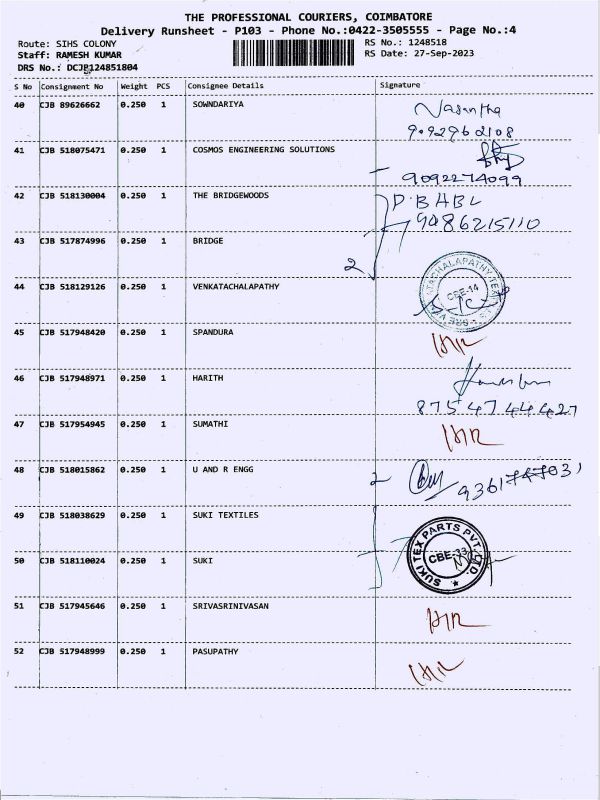 THE PROFESSIONAL COURIERS, COIMBATORE
Delivery Runsheet - P103 - Phone No.:0422-3505555 - Page No.:4
Route: SIHS COLONY
RS No.: 1248518
Staff: RAMESH KUMAR
RS Date: 27-Sep-2023
DRS No.: DCJP124851804
S No Consignment No Weight PCS Consignee Details Signature
40 CJB 89626662 0.250 1 SOWNDARIYA Vasantha
9092962108
41 CJB 518075471 0.250 1 COSMOS ENGINEERING SOLUTIONS
9092274099
42 CJB 518130004 0.250 1 THE BRIDGEWOODS P.BHBL
9486215110
43 CJB 517874996 0.250 1 BRIDGE
2
44 CJB 518129126 0.250 1 VENKATACHALAPATHY
CBE-14
45 CJB 517948420 0.250 1 SPANDURA
46 CJB 517948971 0.250 1 HARITH
8754744427
47 CJB 517954945 0.250 1 SUMATHI
48 CJB 518015862 0.250 1 U AND R ENGG
2
9361747031
49 CJB 518038629 0.250 1 SUKI TEXTILES
50 CJB 518110024 0.250 1 SUKI
SUKI TEX PARTS PVT. LTD.
CBE-33
51 CJB 517945646 0.250 1 SRIVASRINIVASAN
52 CJB 517948999 0.250 1 PASUPATHY